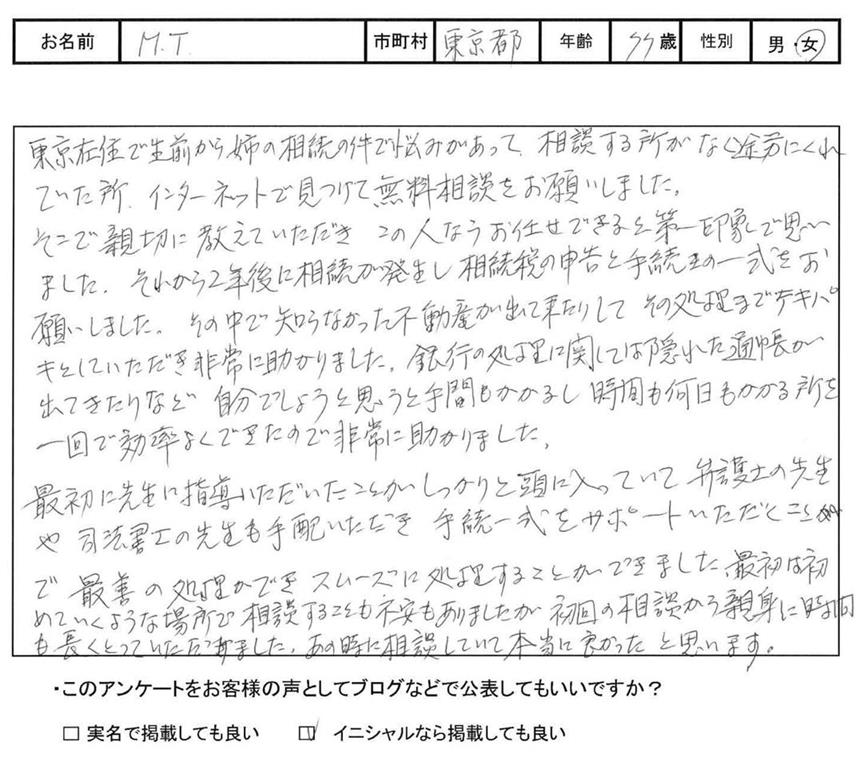 お名前 M.T. 市町村 東京都 年齢 歳 性別 男・女
東京在住で生前から姉の相続の件で悩みがあって、相談する所がなく途方にくれ
ていた所、インターネットで見つけて無料相談をお願いしました。
そこで親切に教えていただき この人ならお任せできると第一印象で思い
ました。それから2年後に相続が発生し相続税の申告と手続きの一式をお
願いしました。その中で知らなかった不動産が出て来たりして その処理までテキパ
キとしていただき非常に助かりました。銀行の処理に関しては隠れた通帳が
出てきたりなど 自分でしようと思うと手間もかかるし 時間も何日もかかる所を
一回で効率よくできたので非常に助かりました。
最初に先生に指導いただいたことがしっかりと頭に入っていて 弁護士の先生
や 司法書士の先生も手配いただき 手続一式をサポートいただくことが
で 最善の処理ができ スムーズに処理することができました。最初は初
めていくような場所で相談することも不安もありましたが 初回の相談から親身に時間
も長くとっていただきました。あの時に相談していて本当に良かったと思います。
・このアンケートをお客様の声としてブログなどで公表してもいいですか？
□ 実名で掲載しても良い ☑ イニシャルなら掲載しても良い